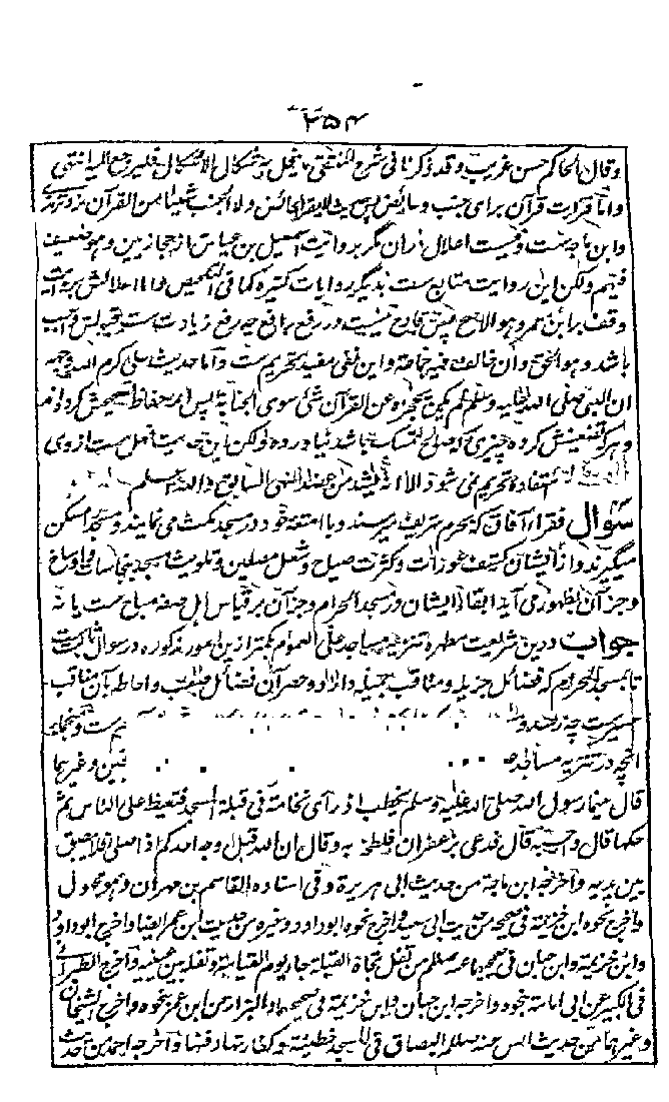 ۲۵۴
وقال الحاکم حسن غریب وقد ذکرنا فی شرح المنتقی ما ینحل به شکال الاشکال فلیرجع الیه انتهی
واما قراءت قرآن برای جنب وحائض پس حدیث لا یقرأ الحائض ولا الجنب شیئا من القرآن نزد ترمذی
وابن ماجه ست وفیست اعلال آن مگر بروایت اسمعیل بن عیاش از حجازیین وهو ضعیف
فیهم ولکن این روایت متابع ست بدیگر روایات کثیره کما فی التلخیص واما اعلالش
وقف بر ابن عمر وهو الاصح پس قادح نیست در رفع رافع چه رفع زیادت ست
باشد وهو الحق وان خالف فیه جماعة واین نفی مفید تحریم ست واما حدیث علی کرم الله وجهه
ان النبی صلی الله علیه وسلم لم یکن یحجزه عن القرآن شئ سوی الجنابة پس ائمه حفاظ تصحیحش کرده اند
وهر که تضعیفش کرده چیزی که صالح تمسک باشد نیاورده ولکن این حدیث از وی
استفاده تحریم نمی شود الا آنکه من عضد النهی السابق والله اعلم
سوال فقراء آفاق که بحرم شریف میرسند وبا امتعه خود در مسجد مکث می نمایند ومسجد را مسکن
میگیرند واز ایشان کشف عورات وکثرت صیاح وشغل مصلین وتلویث مسجد بنجاسات واوساخ
وجز آن بظهور می آید ابقاء ایشان در مسجد الحرام وجز آن بر قیاس اهل صفه مباح ست یا نه
جواب در دین شریعت مطهره تنزیه مساجد علی العموم بکمتر ازین امور مذکوره در سوال ثابت ست
تا بمسجد الحرام که فضائل جزیله ومناقب جمیله دارد وحصر آن فضائل واحاطه بآن مناقب
آنچه در تنزیه مساجد وغیرهما
قال بینما رسول الله صلی الله علیه وسلم یخطب اذ رأی نخامة فی قبلة المسجد فتغیظ علی الناس ثم
حکها قال واحسبه قال فدعی بزعفران فلطخه به وقال ان الله قبل وجه احدکم اذا صلی فلا یبصق
بین یدیه واخرجه ابن ماجة من حدیث ابی هریرة وفی اسناده القاسم بن مهران وهو مجهول
واخرج نحوه ابن خزیمة فی صحیحه من حدیث ابی سعید واخرج نحوه ابو داود وغیره من حدیث ابن عمر ایضا واخرج ابو داود
وابن خزیمة وابن حبان فی صحیحهما عنه صلعم من تفل تجاه القبلة جاء یوم القیامة وتفله بین عینیه واخرج الطبرانی
فی الکبیر عن ابی امامة نحوه واخرجه ابن حبان وابن خزیمة فی صحیحهما والبزار من ابن عمر نحوه واخرج الشیخان
وغیرهما من حدیث انس عنه صلعم البصاق فی المسجد خطیئة وکفارتها دفنها واخرجه احمد من حدیث